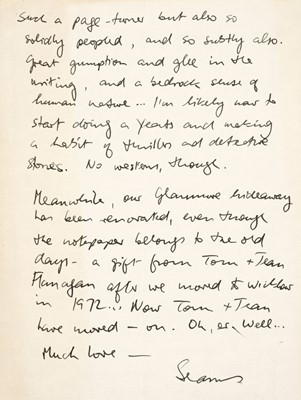 Such a page-turner but also so
solidly peopled, and so subtly also.
Great gumption and glee in the
writing, and a bedrock sense of
human nature... I'm likely now to
start doing a Yeats and making
a habit of thrillers and detective
stories. No westerns, though.
Meanwhile, our Glanmore hideaway
has been renovated, even though
the notepaper belongs to the old
days - a gift from Tom + Jean
Flanagan after we moved to Wicklow
in 1972... Now Tom + Jean
have moved - on. Oh, er, well...
Much love —
Seamus